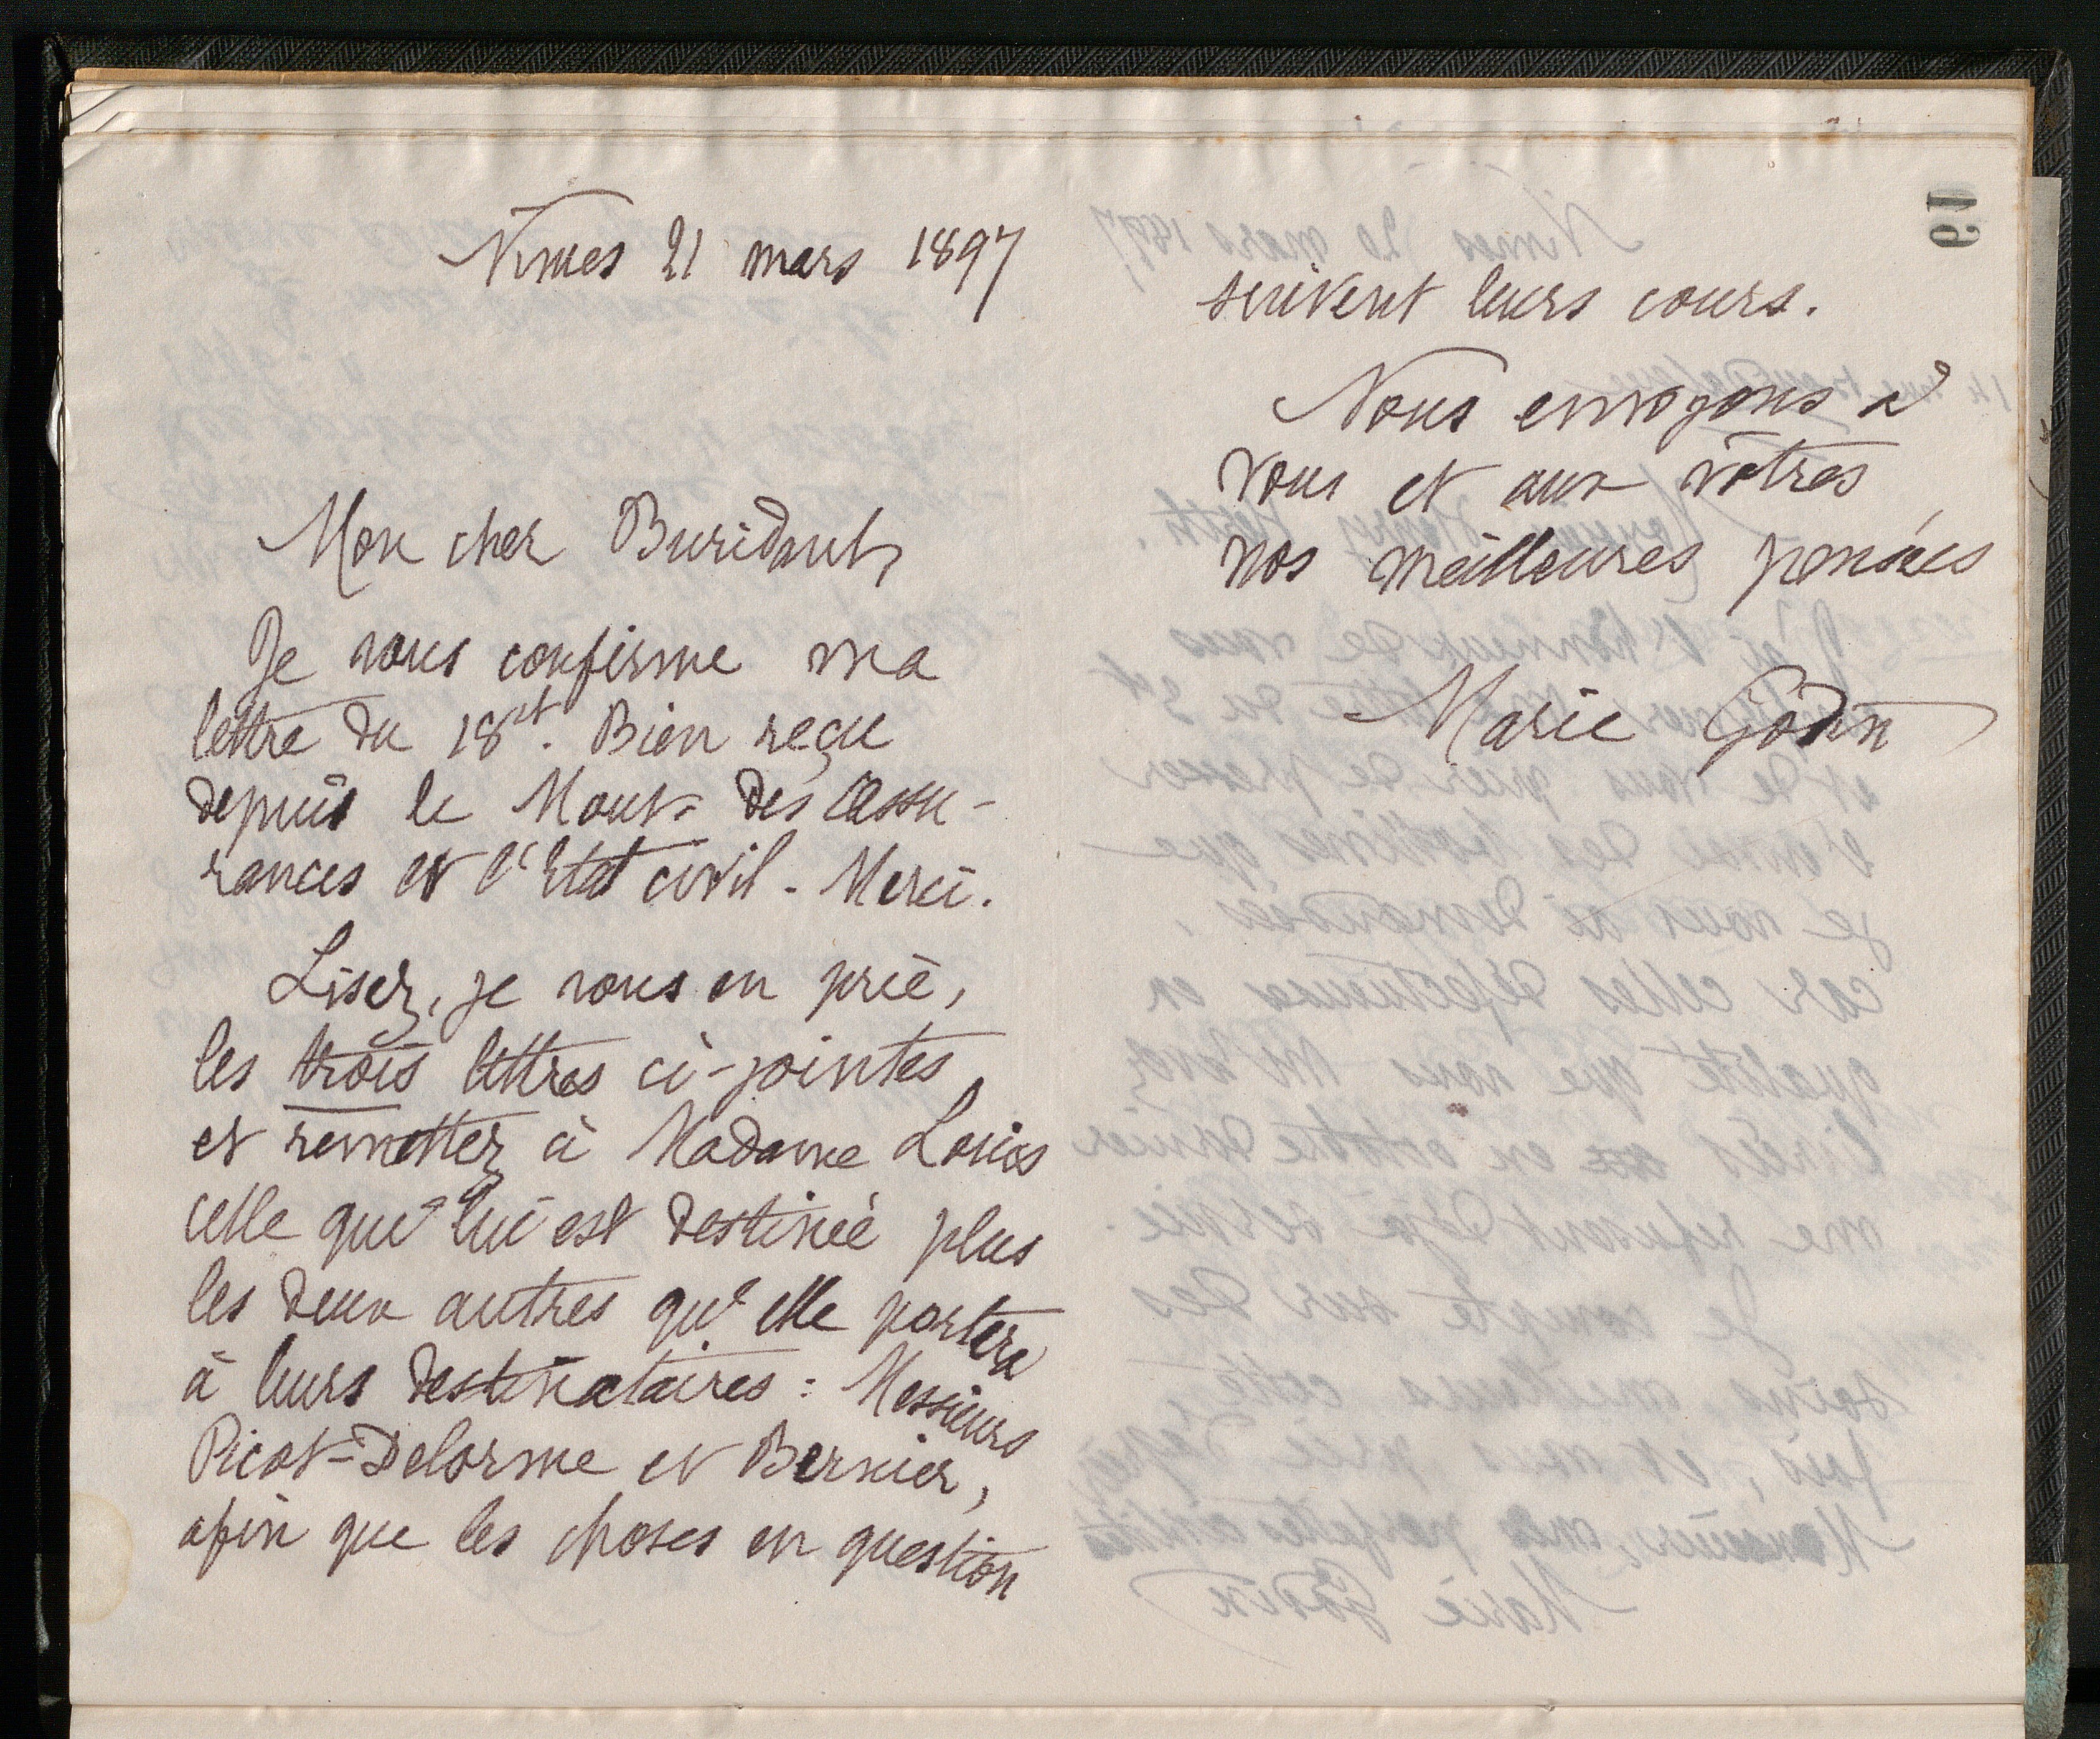 Nîmes 21 mars 1897
Mon cher Buridant,
Je vous confirme ma
lettre du 18 ct. Bien reçu
depuis le Mout. des Assu-
rances et l'État civil. Merci.
Lisez, je vous en prie,
les trois lettres ci-jointes
et remettez à Madame Louis
celle qui lui est destinée plus
les deux autres qu'elle portera
à leurs destinataires : Messieurs
Picot-Delorme et Bernier,
afin que les choses en question
suivent leurs cours.
Nous envoyons à
vous et aux vôtres
nos meilleures pensées
Marie Godin